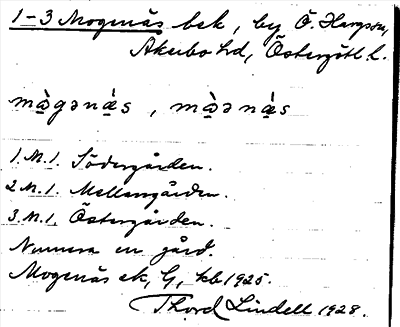 1-3 Mogenäs bsk, by Ö. Hargs sn,
Åkerbo hd, Östergötl. l.
mɑ̀gənǽs, mɑ̀ənǽs
1. M. 1. Södergården.
2. M. 1. Mellangården.
3. M. 1. Östergården.
Numera en gård.
Mogenäs ek, G, kb 1925.
Thord Lindell 1928.